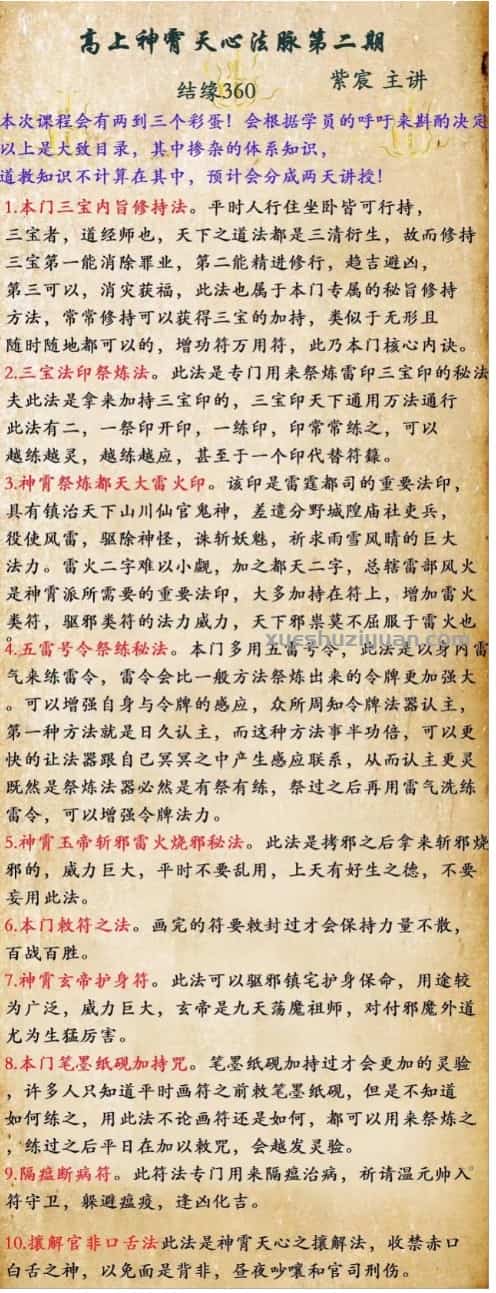 高上神霄天心法脉第二期
结缘360
紫宸 主讲
本次课程会有两到三个彩蛋！会根据学员的呼吁来斟酌决定
以上是大致目录，其中掺杂的体系知识，
道教知识不计算在其中，预计会分成两天讲授！
1.本门三宝内旨修持法。平时人行住坐卧皆可行持，
三宝者，道经师也，天下之道法都是三清衍生，故而修持
三宝第一能消除罪业，第二能精进修行，趋吉避凶，
第三可以，消灾获福，此法也属于本门专属的秘旨修持
方法，常常修持可以获得三宝的加持，类似于无形且
随时随地都可以的，增功符万用符，此乃本门核心内诀。
2.三宝法印祭炼法。此法是专门用来祭炼雷印三宝印的秘法
夫此法是拿来加持三宝印的，三宝印天下通用万法通行
此法有二，一祭印开印，一练印，印常常练之，可以
越练越灵，越练越应，甚至于一个印代替符籙。
3.神霄祭炼都天大雷火印。该印是雷霆都司的重要法印，
具有镇治天下山川仙官鬼神，差遣分野城隍庙社吏兵，
役使风雷，驱除神怪，诛斩妖魅，祈求雨雪风晴的巨大
法力。雷火二字难以小觑，加之都天二字，总辖雷部风火
是神霄派所需要的重要法印，大多加持在符上，增加雷火
类符，驱邪类符的法力威力，天下邪祟莫不屈服于雷火也
。
xueshuziyuan.com
4.五雷号令祭练秘法。本门多用五雷号令，此法是以身内雷
气来练雷令，雷令会比一般方法祭炼出来的令牌更加强大
。可以增强自身与令牌的感应，众所周知令牌法器认主，
第一种方法就是日久认主，而这种方法事半功倍，可以更
快的让法器跟自己冥冥之中产生感应联系，从而认主更灵
既然是祭炼法器必然是有祭有练，祭过之后再用雷气洗练
雷令，可以增强令牌法力。
5.神霄玉帝斩邪雷火烧邪秘法。此法是拷邪之后拿来斩邪烧
邪的，威力巨大，平时不要乱用，上天有好生之德，不要
妄用此法。
6.本门敕符之法。画完的符要敕封过才会保持力量不散，
百战百胜。
7.神霄玄帝护身符。此法可以驱邪镇宅护身保命，用途较
为广泛，威力巨大，玄帝是九天荡魔祖师，对付邪魔外道
尤为生猛厉害。
8.本门笔墨纸砚加持咒。笔墨纸砚加持过才会更加的灵验
，许多人只知道平时画符之前敕笔墨纸砚，但是不知道
如何练之，用此法不论画符还是如何，都可以用来祭炼之
，练过之后平日在加以敕咒，会越发灵验。
9.隔瘟断病符。此符法专门用来隔瘟治病，祈请温元帅入
符守卫，躲避瘟疫，逢凶化吉。
10.攘解官非口舌法此法是神霄天心之攘解法，收禁赤口
白舌之神，以免面是背非，昼夜吵嚷和官司刑伤。